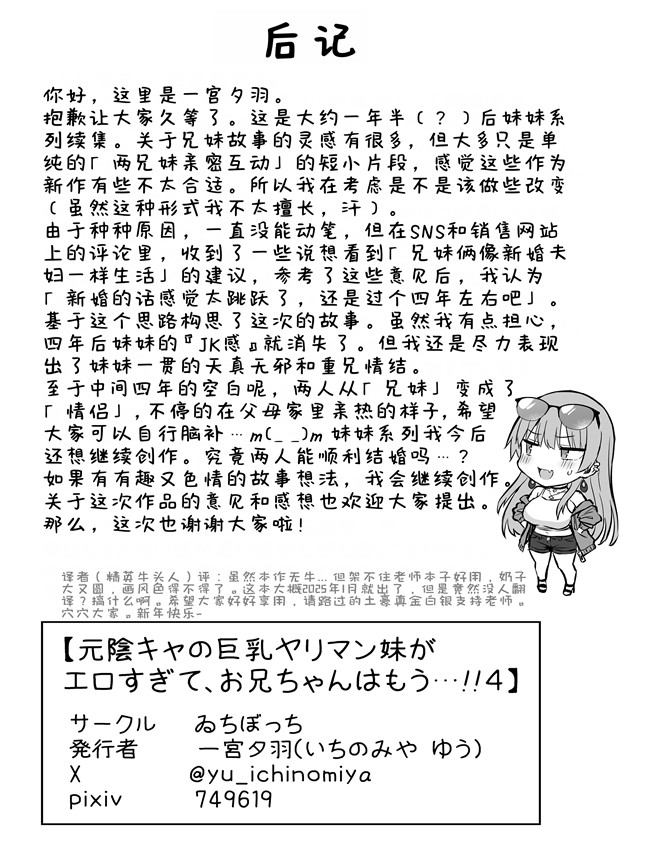 后记
你好，这里是一宫夕羽。
抱歉让大家久等了。这是大约一年半（？）后妹妹系
列续集。关于兄妹故事的灵感有很多，但大多只是单
纯的「两兄妹亲密互动」的短小片段，感觉这些作为
新作有些不太合适。所以我在考虑是不是该做些改变
（虽然这种形式我不太擅长，汗）。
由于种种原因，一直没能动笔，但在SNS和销售网站
上的评论里，收到了一些说想看到「兄妹俩像新婚夫
妇一样生活」的建议，参考了这些意见后，我认为
「新婚的话感觉太跳跃了，还是过个四年左右吧」。
基于这个思路构思了这次的故事。虽然我有点担心，
四年后妹妹的『JK感』就消失了。但我还是尽力表现
出了妹妹一贯的天真无邪和重兄情结。
至于中间四年的空白呢，两人从「兄妹」变成了
「情侣」,不停的在父母家里亲热的样子,希望
大家可以自行脑补…m(_ _)m 妹妹系列我今后
还想继续创作。究竟两人能顺利结婚吗…？
如果有有趣又色情的故事想法，我会继续创作。
关于这次作品的意见和感想也欢迎大家提出。
那么，这次也谢谢大家啦！
译者（精英牛头人）评：虽然本作无牛... 但架不住老师本子好用，奶子
大又圆，画风色得不得了。这本大概2025年1月就出了，但是竟然没人翻
译？搞什么啊。希望大家好好享用，请路过的土豪真金白银支持老师。
穴穴大家。新年快乐~
【元陰キャの巨乳ヤリマン妹が
エロすぎて､お兄ちゃんはもう…!!4】
サークル ゐちぼっち
発行者 一宮夕羽(いちのみや ゆう)
X @yu_ichinomiya
pixiv 749619